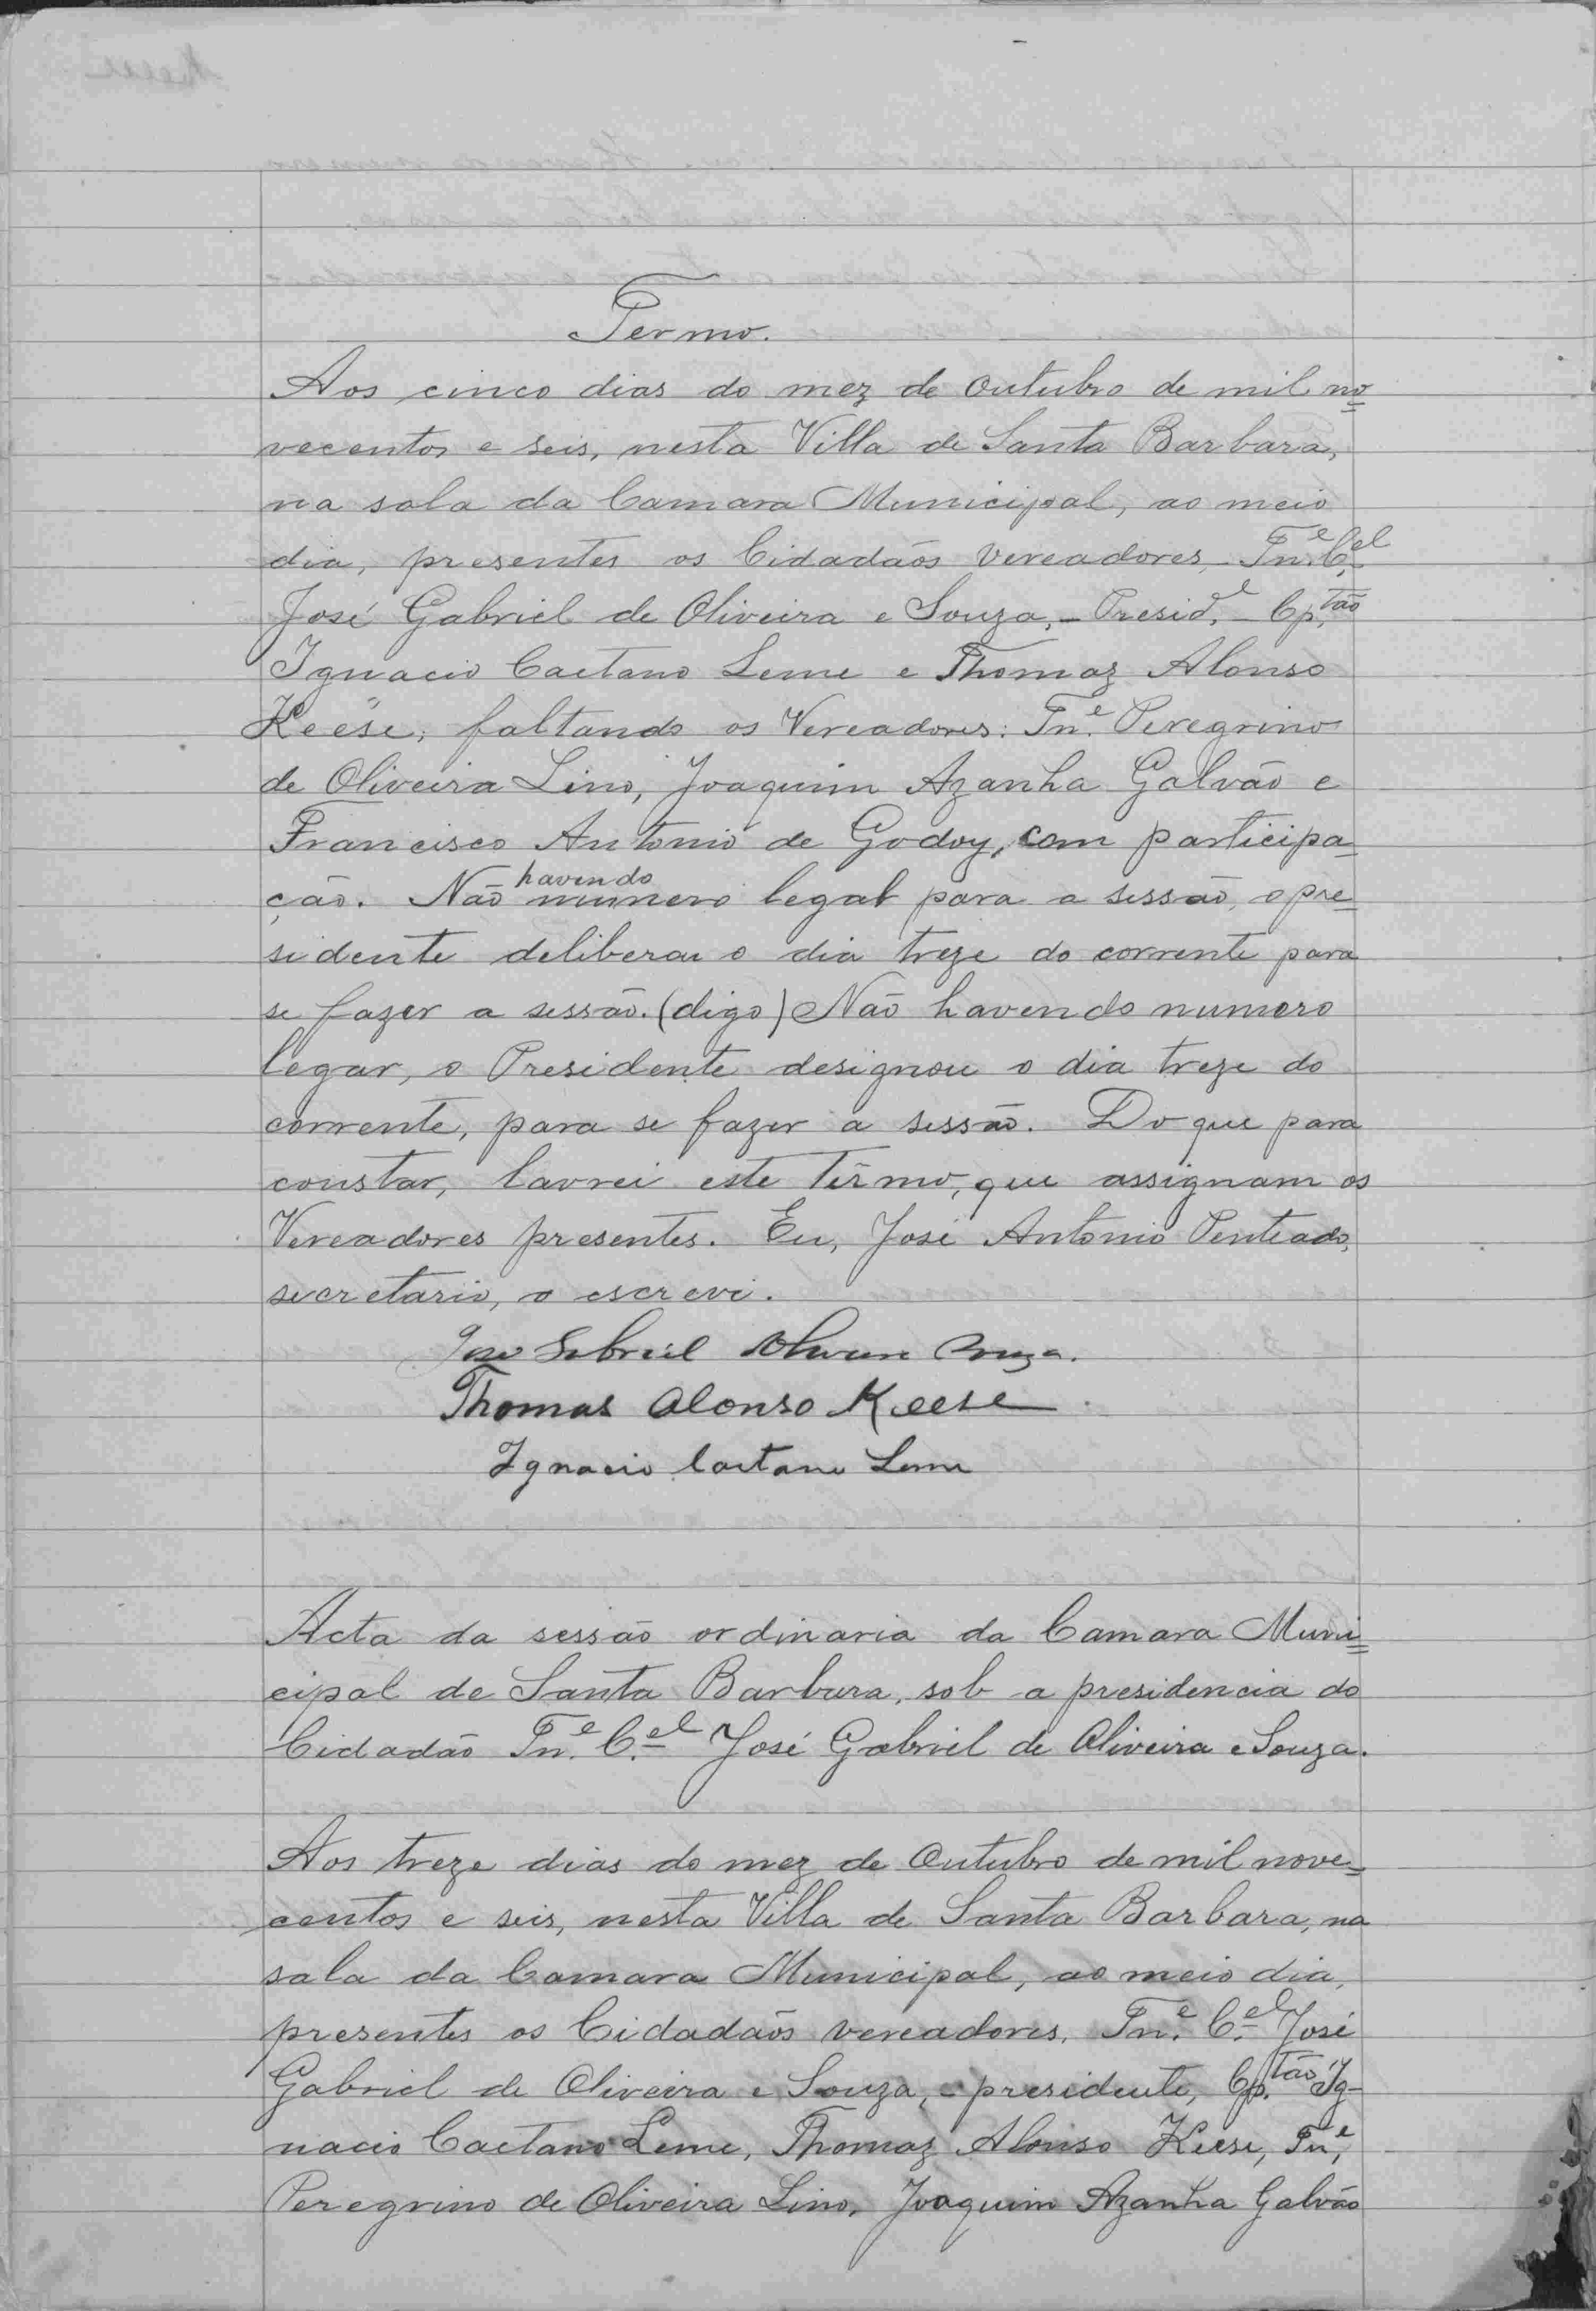 Termo.
Aos cinco dias do mez de Outubro de mil no=
vecentos e seis, nesta Villa de Santa Barbara,
na sala da Camara Municipal, ao meio
dia, presentes os Cidadãos Vereadores, Tn.e C.el
José Gabriel de Oliveira e Souza, - Presid.e - Cp.tão
Ignacio Caetano Leme e Thomaz Alonso
Keese, faltando os Vereadores: Tn.e Peregrino
de Oliveira Lino, Joaquim Azanha Galvão e
Francisco Antonio de Godoy, com participa=
ção. Não havendo numero legal para a sessão, o pre=
sidente deliberou o dia treze do corrente para
se fazer a sessão. (digo) Não havendo numero
legar, o Presidente designou o dia treze do
corrente, para se fazer a sessão. Do que para
constar, lavrei este termo, que assignam os
Vereadores presentes. Eu, José Antonio Penteado,
secretario, o escrevi.
José Gabriel Oliveira Souza.
Thomas Alonso Keese
Ignacio Caetano Leme
Acta da sessão ordinaria da Camara Muni=
cipal de Santa Barbara, sob a presidencia do
Cidadão Tn.e C.el José Gabriel de Oliveira e Souza.
Aos treze dias do mez de Outubro de mil nove=
centos e seis, nesta Villa de Santa Barbara, na
sala da Camara Municipal, ao meio dia,
presentes os Cidadãos vereadores, Tn.e C.el José
Gabriel de Oliveira e Souza, - presidente, Cp.tão Ig-
nacio Caetano Leme, Thomaz Alonso Keese, Tn.e
Peregrino de Oliveira Lino, Joaquim Azanha Galvão